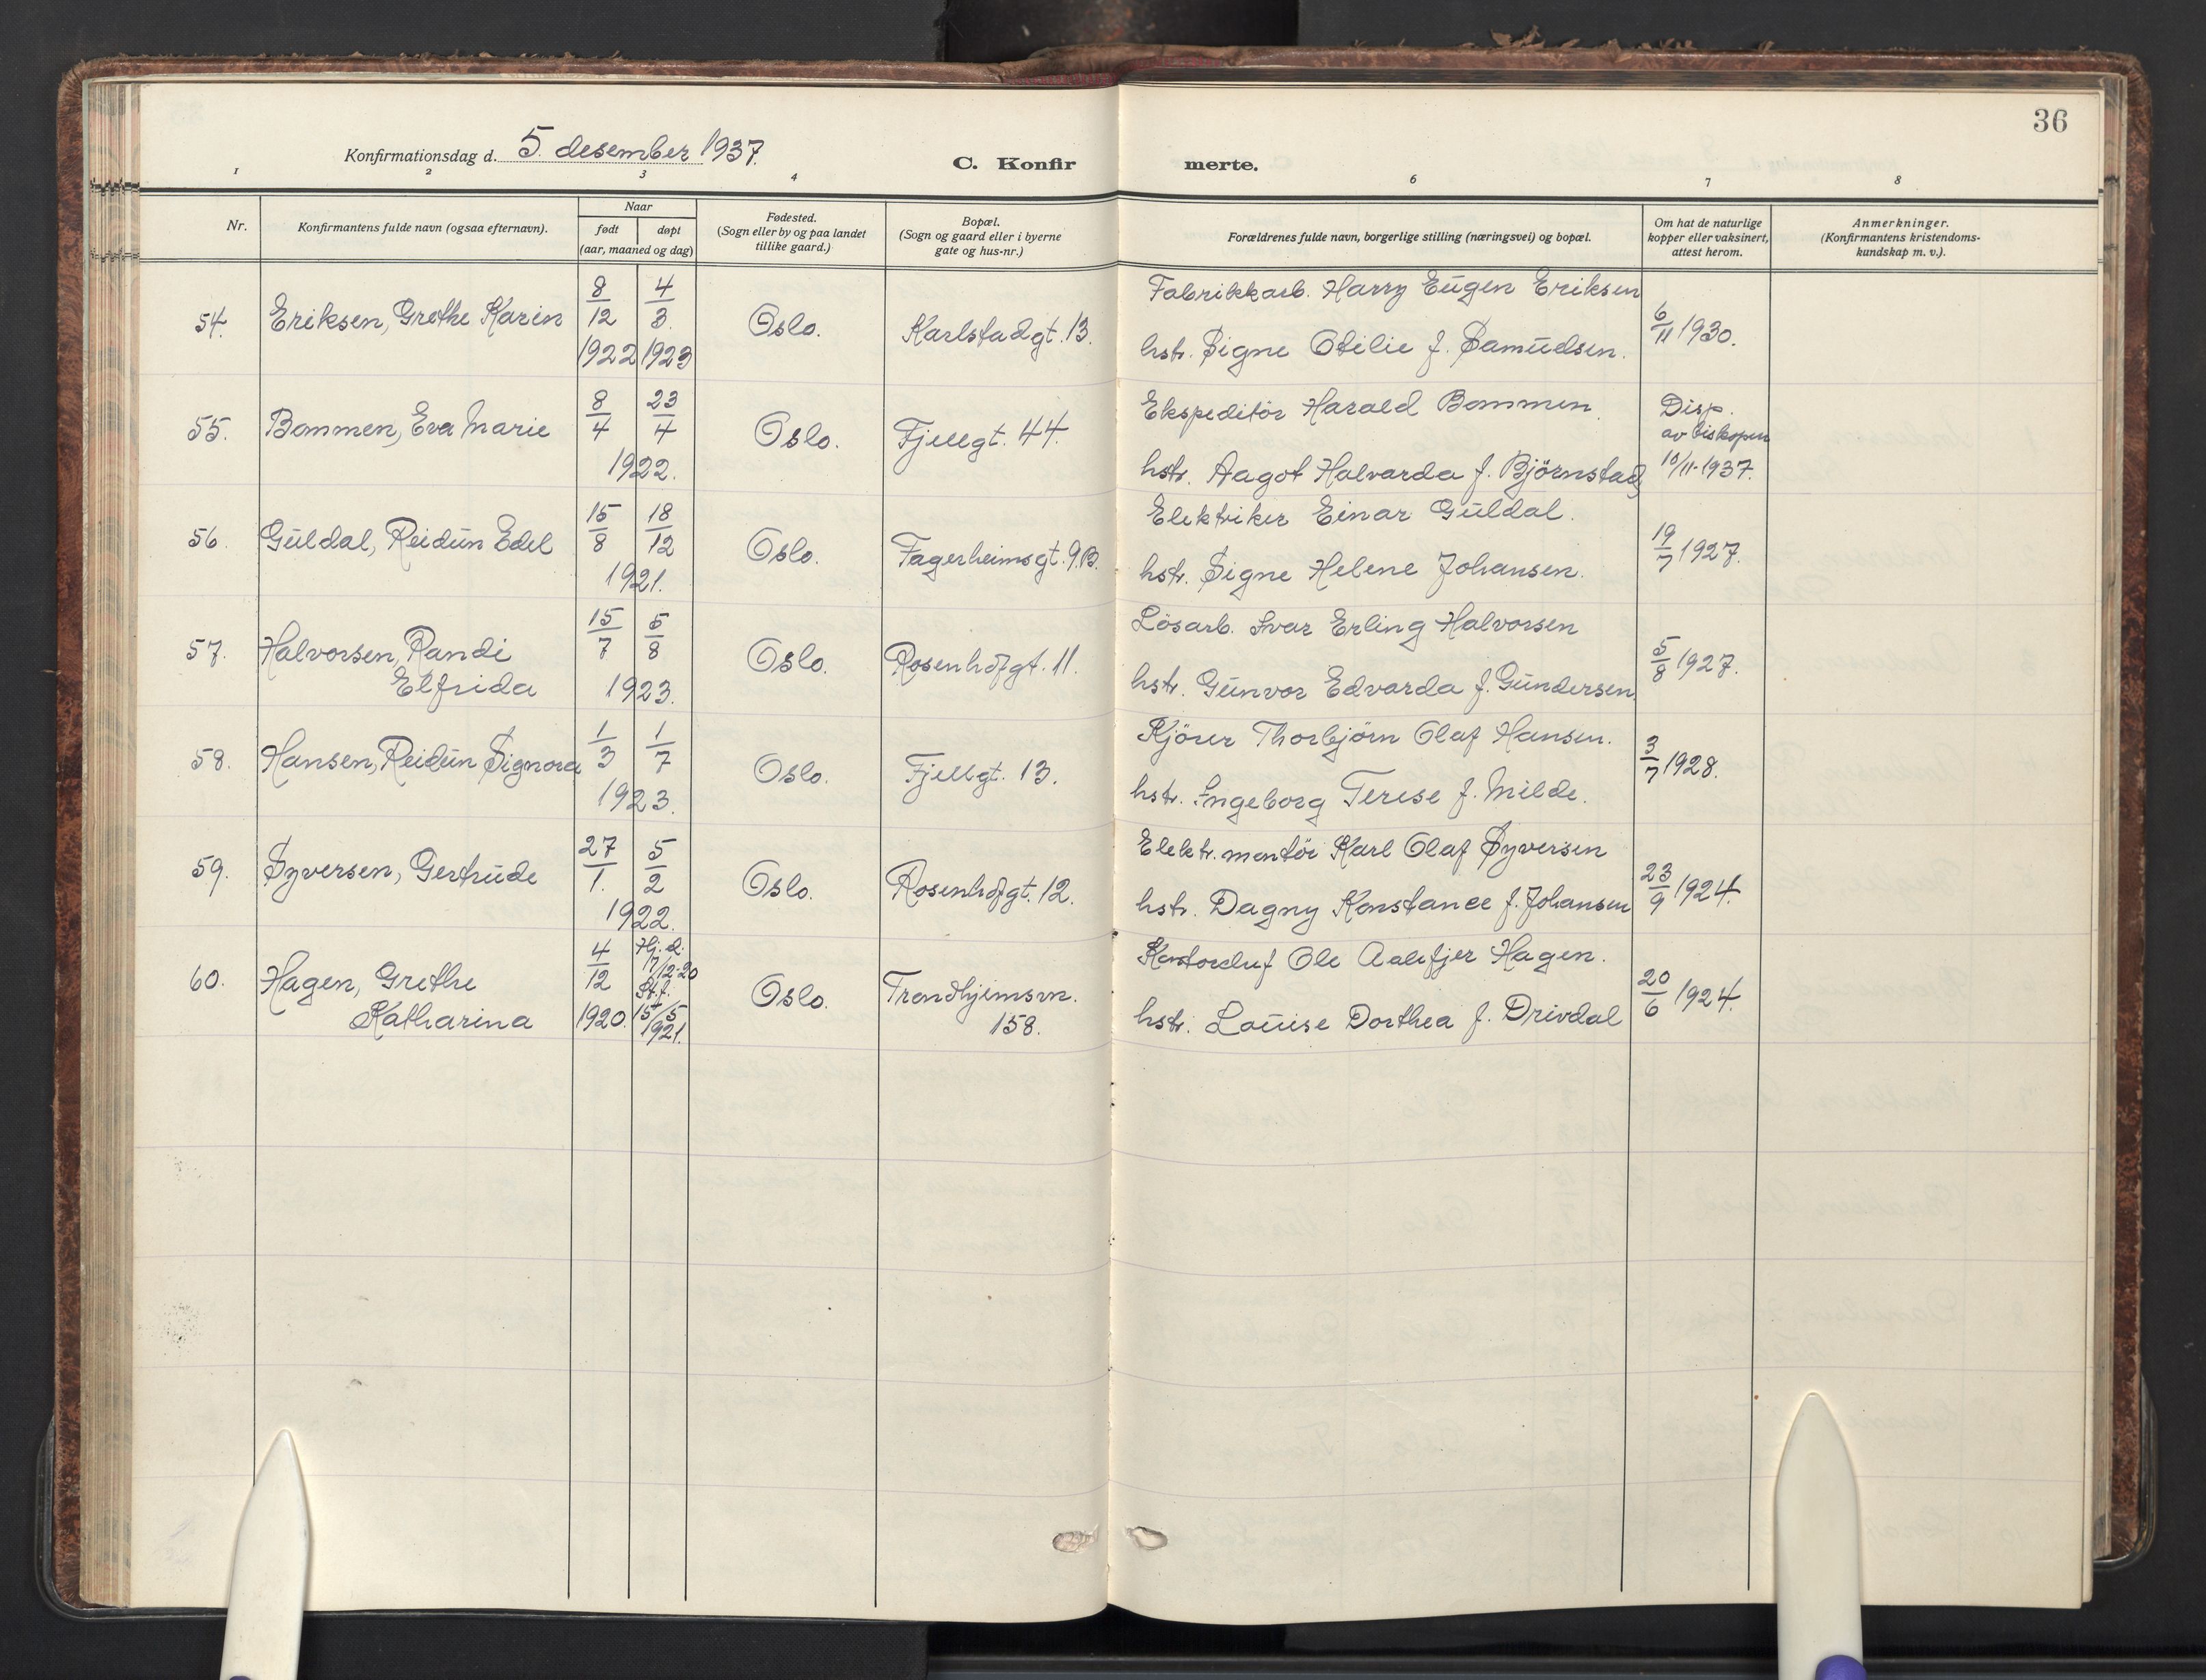 36
Konfirmationsdag d. 5. desember 1937.
C. Konfir merte.
1 2 3 4 6 7 8
Nr.
Konfirmantens fulde navn (ogsaa efternavn).
Naar
født døpt
(aar, maaned og dag)
Fødested.
(Sogn eller by og paa landet
tillike gaard.)
Bopæl.
(Sogn og gaard eller i byerne
gate og hus-nr.)
Forældrenes fulde navn, borgerlige stilling (næringsvei) og bopæl.
Om hat de naturlige
kopper eller vaksinert,
attest herom.
Anmerkninger.
(Konfirmantens kristendoms-
kundskap m. v.).
54. Eriksen, Grethe Karin 8/12 1922 4/3. 1923 Oslo. Karlstadgt. 13.
Fabrikkarb. Harry Eugen Eriksen
hstr. Signe Otilie f. Samuelsen.
6/11 1930.
55. Bommen, Eva Marie 8/4 23/4 1922. Oslo. Fjellgt. 44.
Ekspeditör Harald Bommen.
hstr. Aagot Halvarda f. Björnstad
Disp.
av biskopen
10/11-1937.
56. Guldal, Reidun Edel 15/8 18/12 1921. Oslo. Fagerheimsgt. 9.B.
Elektriker Einar Guldal.
hstr. Signe Helene Johansen.
19/7 1927.
57. Halvorsen, Randi
Elfrida 15/7 5/8 1923. Oslo. Rosenhofgt. 11.
Lösarb. Ivar Erling Halvorsen
hstr. Gunvor Edvarda f. Gundersen
5/8 1927.
58. Hansen, Reidun Signora 1/3 1/7 1923. Oslo. Fjellgt. 13.
Kjörer Thorbjörn Olaf Hansen.
hstr. Ingeborg Terese f. Milde.
3/7 1928.
59. Syversen, Gertrude 27/1. 5/2 1922. Oslo. Rosenhofgt. 12.
Elektr. montör Karl Olaf Syversen
hstr. Dagny Konstance f. Johansen
23/9 1924.
60. Hagen, Grethe
Katharina 4/12 1920. Hj. d.
17/12-20
St. f.
15/5
1921. Oslo. Trondhjemsvn.
158.
Kontorchef Ole Aalefjer Hagen.
hstr. Louise Dorthea f. Drivdal
20/6 1924.